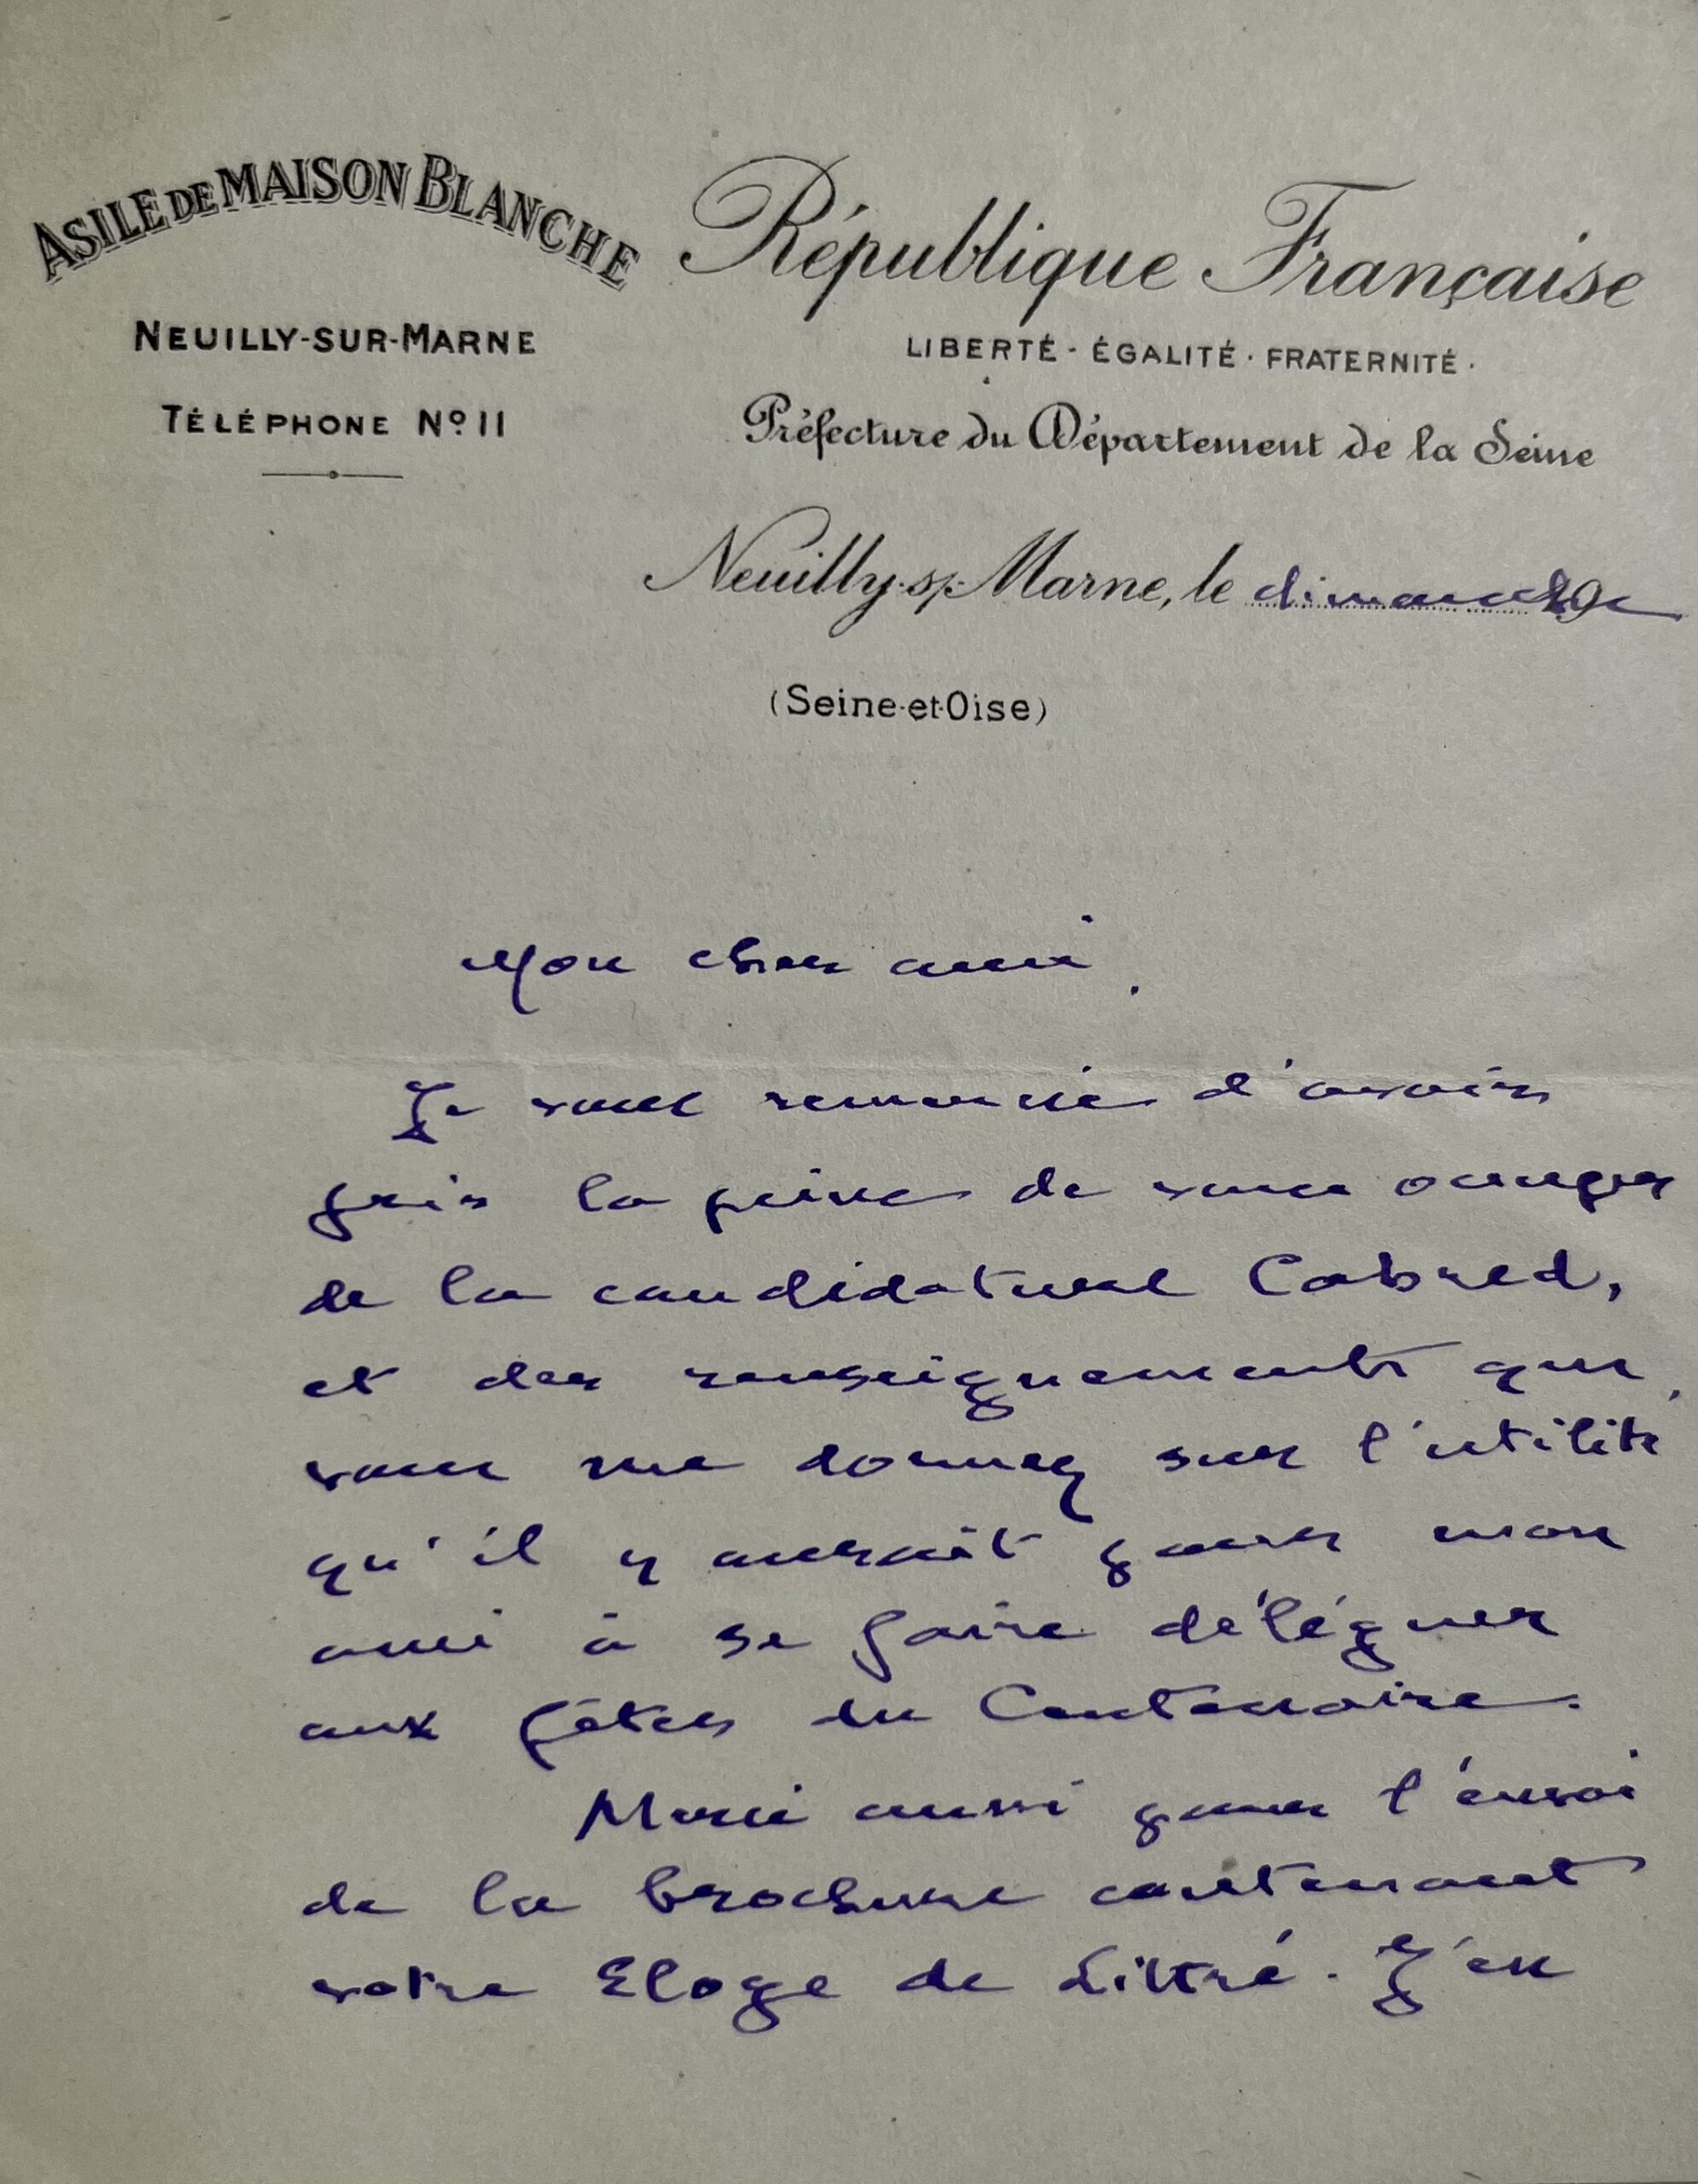 ASILE DE MAISON BLANCHE
NEUILLY-SUR-MARNE
TÉLÉPHONE Nº 11
République Française
LIBERTÉ - ÉGALITÉ - FRATERNITÉ
Préfecture du Département de la Seine
Neuilly-s/-Marne, le dimanche 19
(Seine-et-Oise)
Mon cher ami,
Je vous remercie d'avoir
pris la peine de vous occuper
de la candidature Cabred,
et des renseignements que
vous me donnez sur l'utilité
qu'il y aurait pour mon
ami à se faire déléguer
aux fêtes du Centenaire.
Merci aussi pour l'envoi
de la brochure contenant
votre Eloge de Littré. J'en